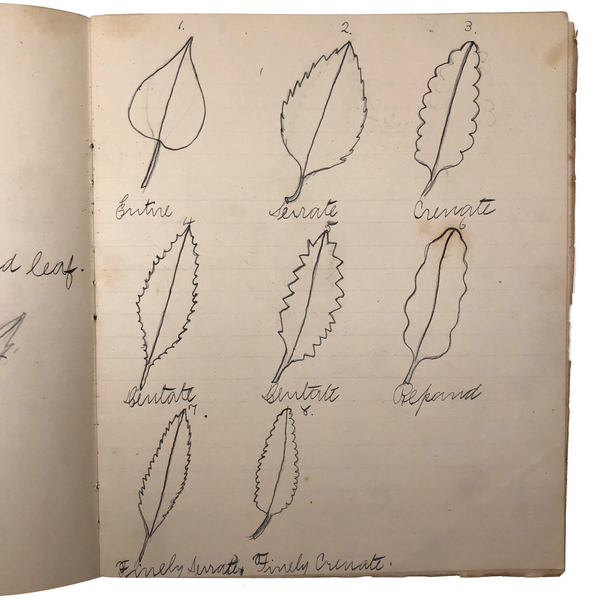 1. 2. 3.
Entire Serrate Crenate
d leaf.
4 5 6
Dentate Dentate Repand
7. 8.
Finely Serrate. Finely Crenate.